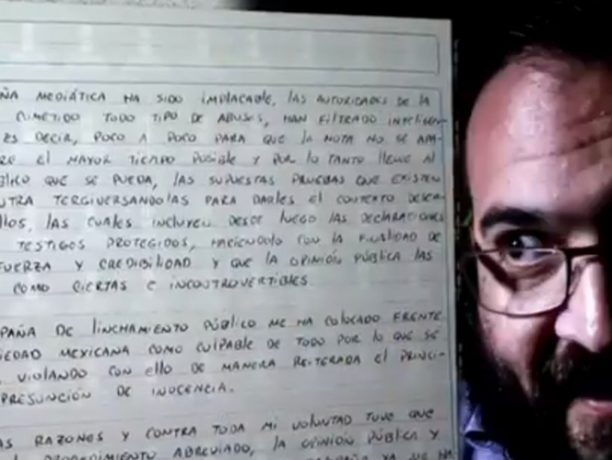 ÑA MEDIÁTICA HA SIDO IMPLACABLE, LAS AUTORIDADES DE LA
COMETIDO TODO TIPO DE ABUSOS, HAN FILTRADO
ES DECIR, POCO A POCO PARA QUE LA NOTA NO SE APA-
RE EL MAYOR TIEMPO POSIBLE Y POR LO TANTO LLEGUE AL
BLICO QUE SE PUEDA, LAS SUPUESTAS PRUEBAS QUE EXISTEN
TRA TERGIVERSANDOLAS PARA DARLES EL CONTEXTO DESEA
LLOS, LAS CUALES INCLUYEN DESDE LUEGO LAS DECLARACIONES
TESTIGOS PROTEGIDOS, HACIENDOLO CON LA FINALIDAD DE
FUERZA Y CREDIBILIDAD Y QUE LA OPINIÓN PÚBLICA LAS
COMO CIERTAS E INCONTROVERTIBLES.
PAÑA DE LINCHAMIENTO PÚBLICO ME HA COLOCADO FRENTE
IEDAD MEXICANA COMO CULPABLE DE TODO POR LO QUE SE
VIOLANDO CON ELLO DE MANERA REITERADA EL PRINCI-
PRESUNCIÓN DE INOCENCIA.
AS RAZONES Y CONTRA TODA MI VOLUNTAD TUVE QUE
PROCEDIMIENTO ABREVIADO, LA OPINIÓN PÚBLICA Y
YA QUE HA